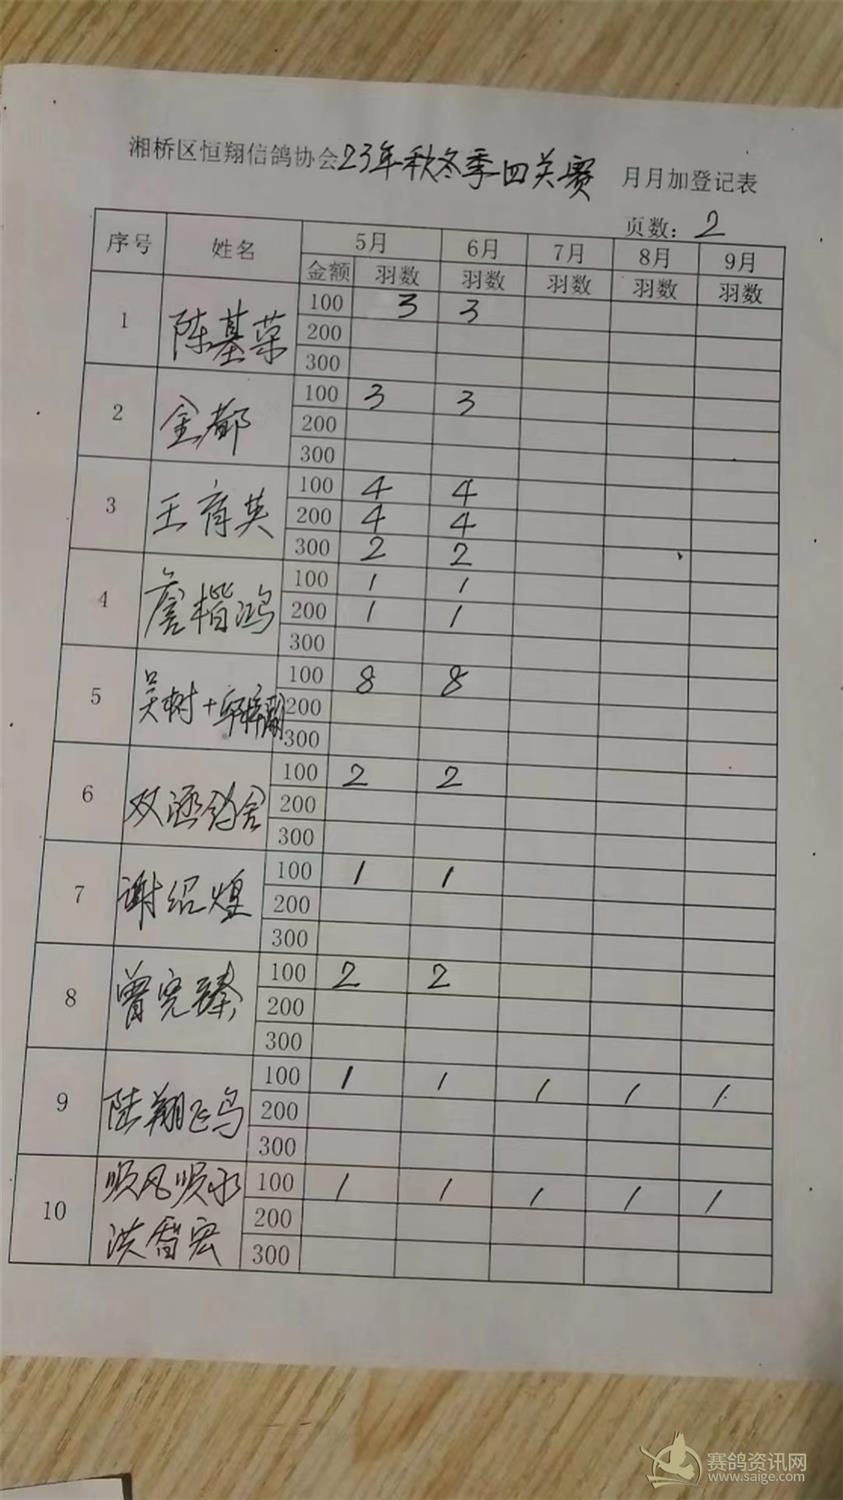 湘桥区恒翔信鸽协会23年秋冬季四关赛 月月加登记表
页数：2
序号 姓名 5月 6月 7月 8月 9月
金额 羽数 羽数 羽数 羽数 羽数
1 陈基荣 100 3 3
200
300
2 金都 100 3 3
200
300
3 王育英 100 4 4
200 4 4
300 2 2
4 詹楷鸿 100 1 1
200 1 1
300
5 吴树+ 100 8 8
200
300
6 双涵鸽舍 100 2 2
200
300
7 谢绍煌 100 1 1
200
300
8 曾宪臻 100 2 2
200
300
9 陆翔飞鸟 100 1 1 1 1 1
200
300
10 顺风顺水 100 1 1 1 1 1
洪智宏 200
300
赛鸽资讯网
www.saige.com